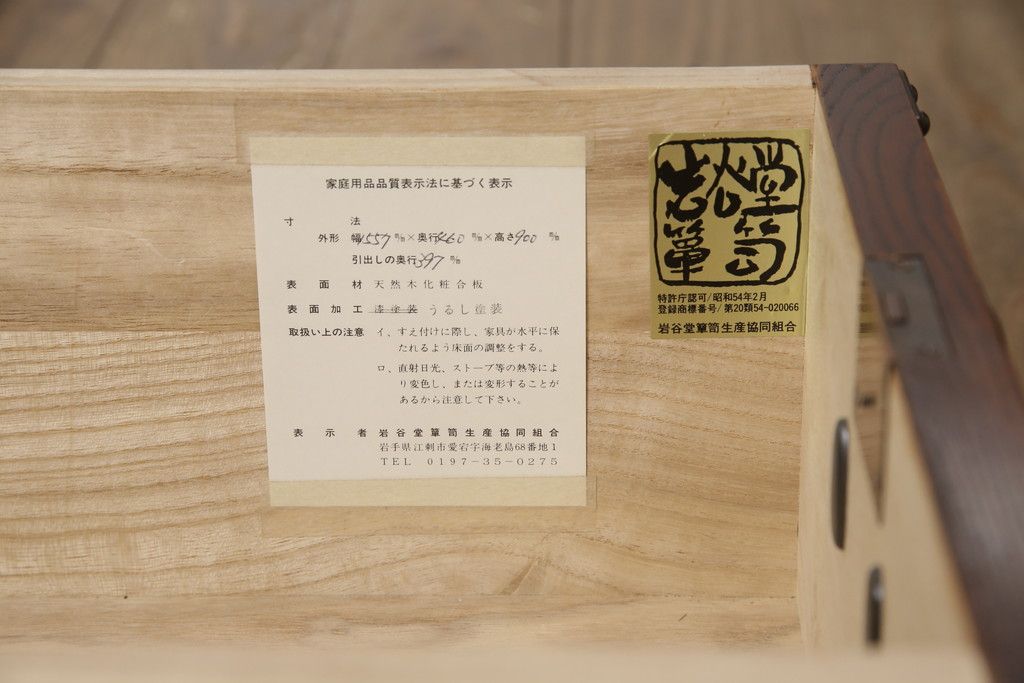 家庭用品品質表示法に基づく表示
寸法
外形 幅1557 m/m × 奥行460 m/m × 高さ900 m/m
引出しの奥行397 m/m
表面材 天然木化粧合板
表面加工 漆塗装 うるし塗装
取扱い上の注意 イ、すえ付けに際し、家具が水平に保
たれるよう床面の調整をする。
ロ、直射日光、ストーブ等の熱等によ
り変色し、または変形することが
あるから注意して下さい。
表示者 岩谷堂簞笥生産協同組合
岩手県江刺市愛宕字海老島68番地1
TEL 0197-35-0275
岩谷堂
簞笥
特許庁認可/昭和54年2月
登録商標番号/第20類54-020066
岩谷堂簞笥生産協同組合